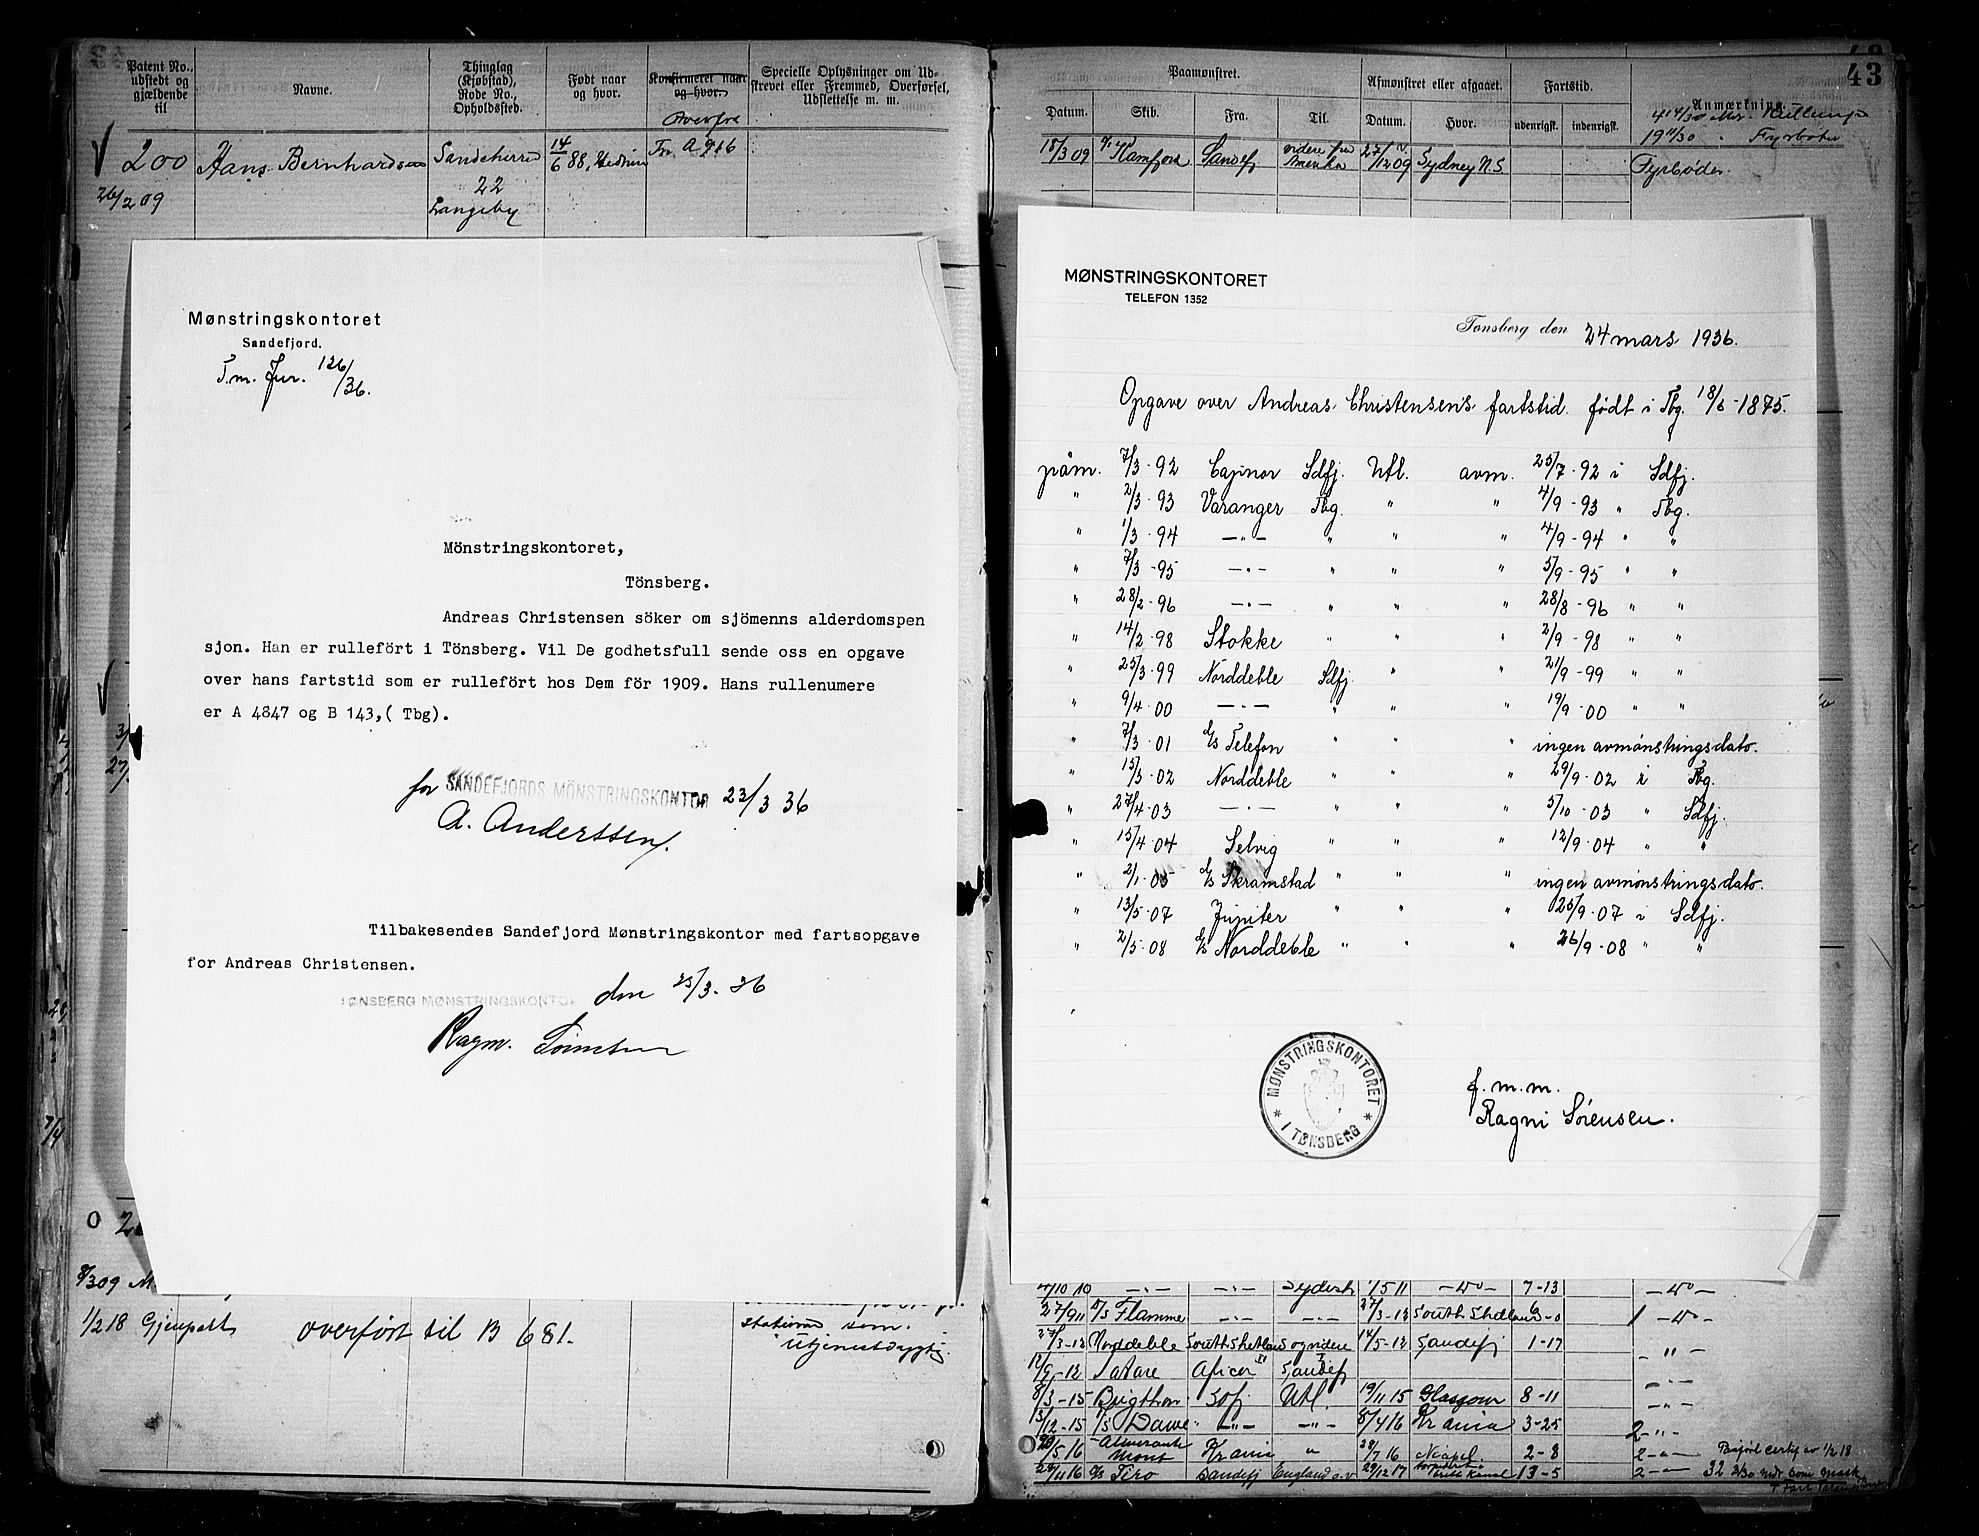 Patent No., udstedt og gjældende til
Navne.
Thinglag (Kjøbstad), Rode No., Opholdssted.
Født naar og hvor.
Konfirmeret naar og hvor.
Specielle Oplysninger om Udskrevet eller Fremmed, Overførsel, Udslettelse m. m.
Overført
200 Hans Bernhardsen Sandeherred 14/6 88, Hedrum Tr A 916
26/2 09
22
Langeby
Mønstringskontoret
Sandefjord.
T.m. Jur. 126/36.
Mönstringskontoret,
Tönsberg.
Andreas Christensen söker om sjömenns alderdomspen
sjon. Han er rullefört i Tönsberg. Vil De godhetsfull sende oss en opgave
over hans fartstid som er rullefört hos Dem för 1909. Hans rullenumere
er A 4847 og B 143,( Tbg).
for SANDEFJORDS MÖNSTRINGSKONTOR 23/3 36
A. Anderssen.
Tilbakesendes Sandefjord Mønstringskontor med fartsopgave
for Andreas Christensen.
TØNSBERG MØNSTRINGSKONTOR den 25/3. 36
Ragn.
8/3 09
1/2 18 Gjenpart overført til B 681.
utjenestdygtig
43
Paamønstret.
Afmønstret eller afgaaet.
Fartstid.
Anmærkning.
Datum. Skib. Fra. Til. Datum. Hvor. udenrigsk. indenrigsk.
18/3 09 Kamfjord Sandefj 27/12 09 Sydney N.S. Fyrbøder
MØNSTRINGSKONTORET
TELEFON 1352
Tønsberg den 24 mars 1936.
Opgave over Andreas Christensen's fartstid. født i Tbg. 18/6-1875.
påm. 7/3-92 Capinor Sdfj. Utl. avm. 25/7-92 i Sdfj.
" 2/3-93 Varanger Tbg. " " 4/9-93 " Tbg.
" 1/3-94 —"— " " " 4/9-94 " "
" 7/3-95 —"— " " " 5/9-95 " "
" 28/2-96 —"— " " " 28/8-96 " "
" 14/2-98 Stokke " " " 2/9-98 " "
" 25/3-99 Norddeble Sdfj " " 21/9-99 " "
" 9/4-00 —"— " " " 19/9-00 " "
" 7/3-01 d/s Telefon " " " ingen avmönstringsdato.
" 15/3-02 Norddeble " " " 29/9-02 i Tbg.
" 27/4-03 —"— " " " 5/10-03 " Sdfj.
" 15/4-04 Selvig " " " 12/9-04 " "
" 2/1-05 d/s Skramstad " " " ingen avmönstringsdato.
" 13/5-07 Jupiter " " " 25/9-07 i Sdfj.
" 2/5-08 d/s Norddeble " " " 26/9-08 " "
MØNSTRINGSKONTORET
* I TØNSBERG *
f. m. m.
Ragni Sörensen.
4/10 10 —"— —"— 1/5 11 —"— 7-13 —"—
27/9 11 Flamme —"— —"— 27/3-12
27/3-12 Norddeble South Shetland 14/5-12 Sandefj 1-17 — " —
8/3-15 Sdfj Utl. 19/11 15 Glasgow 8-11 — " —
13/12-15 —"— —"— 5/4 16 Krania 3-25 2-"-
20/5 16 Krania " 28/7 16 Neapel 2-8 2-"-
27/11 16 Tiro Sandefj England 29/12 17 13-5 2-"-